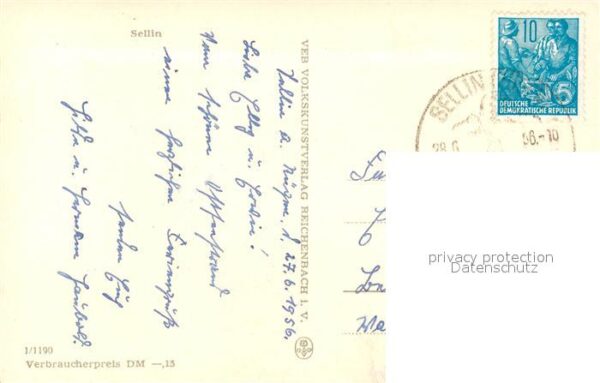 Sellin
Sellin a. Rügen, d. 27.6.1956.
Liebe Elly u. Erwin!
Vom schönen Ostseestrand
einen herzlichen Feriengruß
senden Euch
u.
VEB VOLKSKUNSTVERLAG REICHENBACH i. V.
1/1190
Verbraucherpreis DM —,15
10
5
DEUTSCHE
DEMOKRATISCHE REPUBLIK
SELLIN
28.6
56.-10
privacy protection
Datenschutz